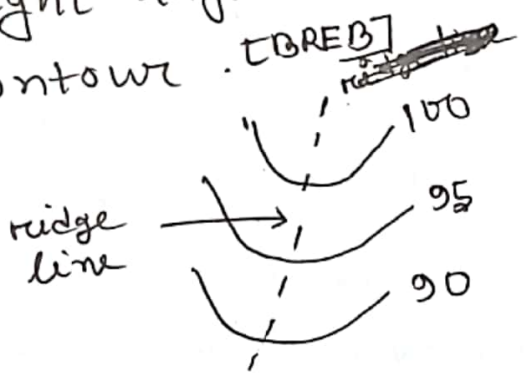 ght
ontour . [BREB]
100
95
ridge
line
90